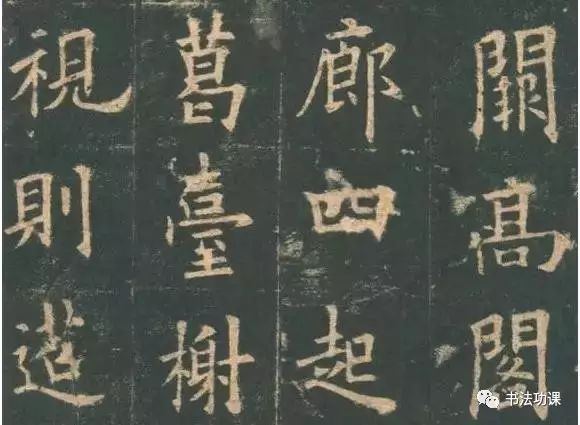 闕高閣
廊四起
葛臺榭
視則迢
书法功课